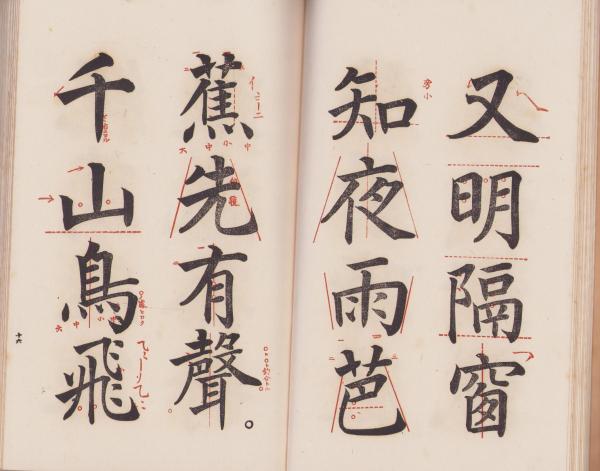 又明隔窗
知夜雨芭
蕉先有聲。
千山鳥飛
十六